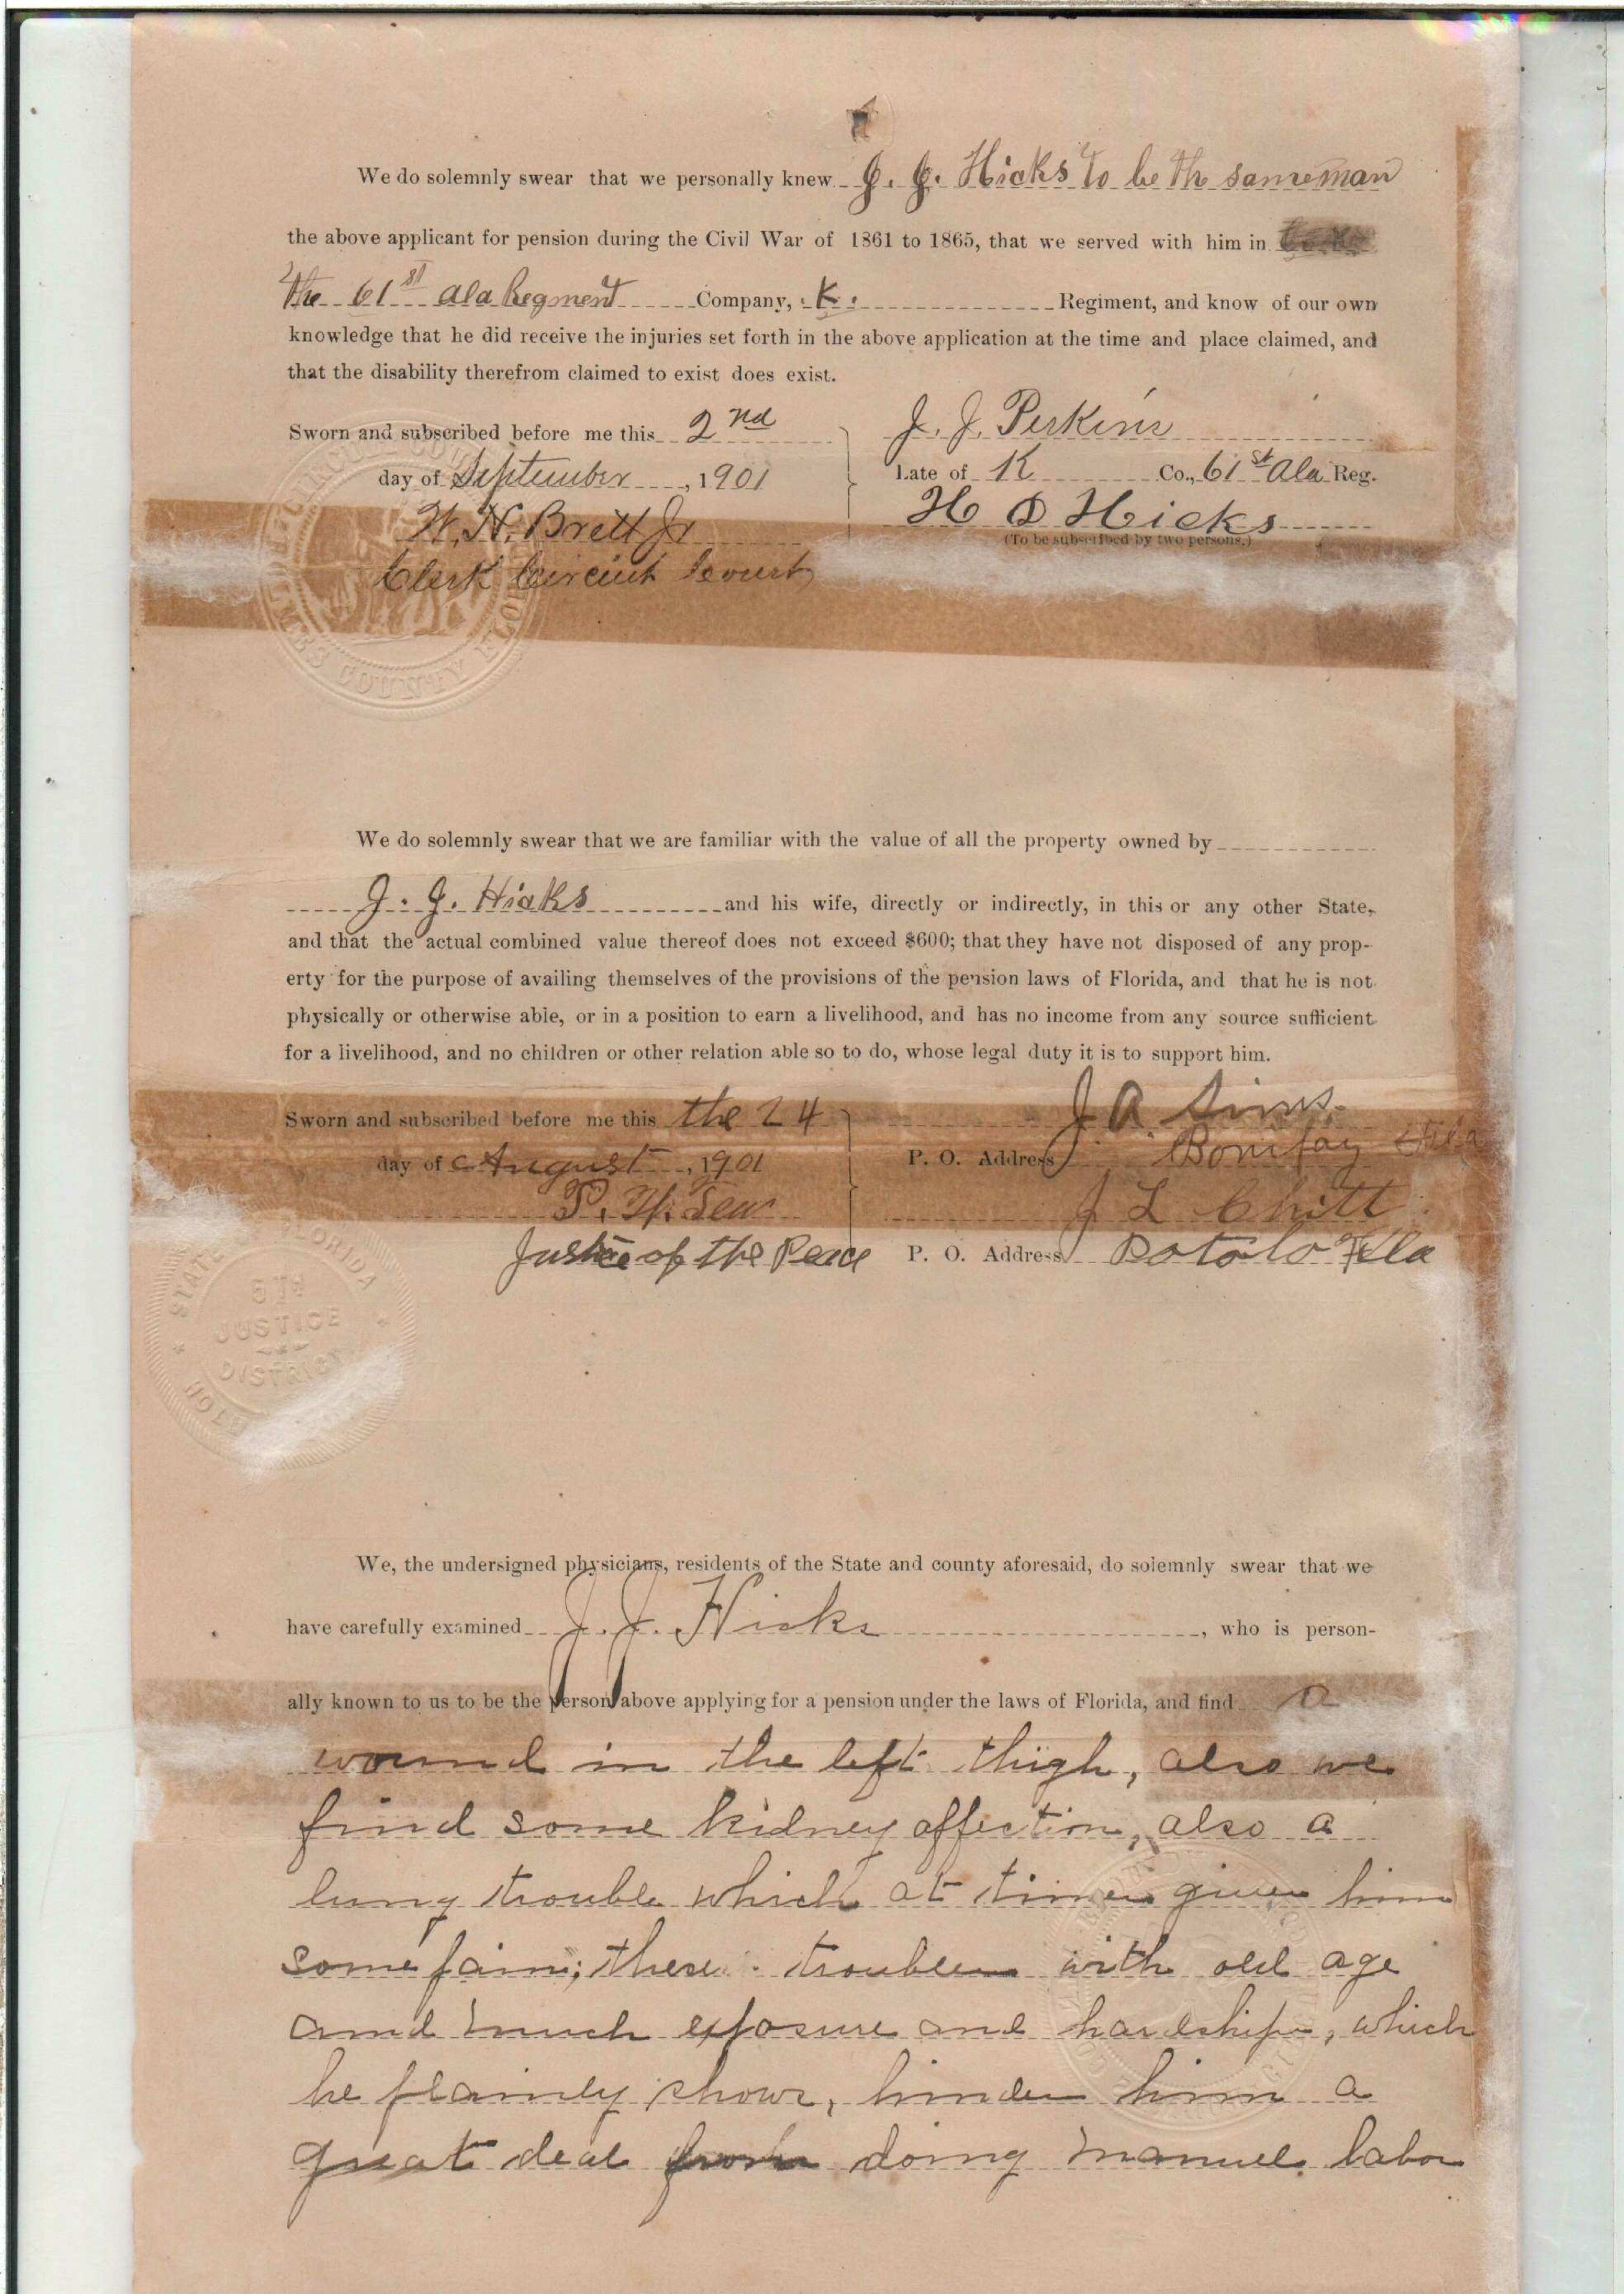 We do solemnly swear that we personally knew J. J. Hicks to be th same man
the above applicant for pension during the Civil War of 1861 to 1865, that we served with him in
the 61st Ala Regment Company, K. Regiment, and know of our own
knowledge that he did receive the injuries set forth in the above application at the time and place claimed, and
that the disability therefrom claimed to exist does exist.
Sworn and subscribed before me this 2nd
day of September, 1901
W. H. Brett Jr
Clerk Circuit Court
J. J. Perkins
Late of K Co., 61st Ala Reg.
H D Hicks
(To be subscribed by two persons.)
COUNTY
We do solemnly swear that we are familiar with the value of all the property owned by
J. J. Hicks and his wife, directly or indirectly, in this or any other State,
and that the actual combined value thereof does not exceed $600; that they have not disposed of any prop-
erty for the purpose of availing themselves of the provisions of the pension laws of Florida, and that he is not
physically or otherwise able, or in a position to earn a livelihood, and has no income from any source sufficient
for a livelihood, and no children or other relation able so to do, whose legal duty it is to support him.
Sworn and subscribed before me this the 24
day of August, 1901
P. H. Tew
Justice of the Peace
J A Sims
P. O. Address Bonifay Fla
J L
P. O. Address Fla
STATE
5TH
JUSTICE
DISTRICT
We, the undersigned physicians, residents of the State and county aforesaid, do solemnly swear that we
have carefully examined J. J. Hicks, who is person-
ally known to us to be the person above applying for a pension under the laws of Florida, and find a
wound in the left thigh, also we
find some kidney affection, also a
lung trouble which at times gives him
some pain; these troubles with old age
and much exposure and hardships, which
he plainly shows, hinder him a
great deal from doing manuel labor